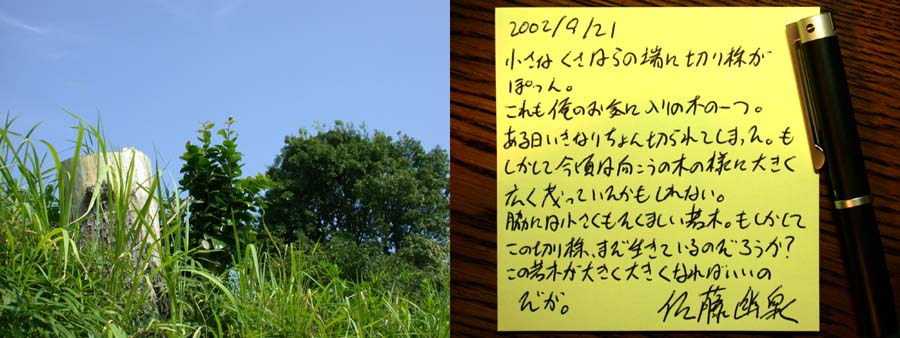 2002/9/21
小さなくさはらの端に切り株が
ぽつん。
これも俺のお気に入りの木の一つ。
ある日いきなりちょん切られてしまった。も
しかして今頃は向こうの木の様に大きく
広く茂っていたかもしれない。
脇には小さくもたくましい若木。もしかして
この切り株、まだ生きているのだろうか?
この若木が大きく大きくなればいいの
だが。 佐藤幽泉